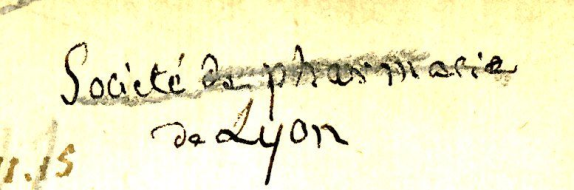 Société de pharmacie
de Lyon
11.15